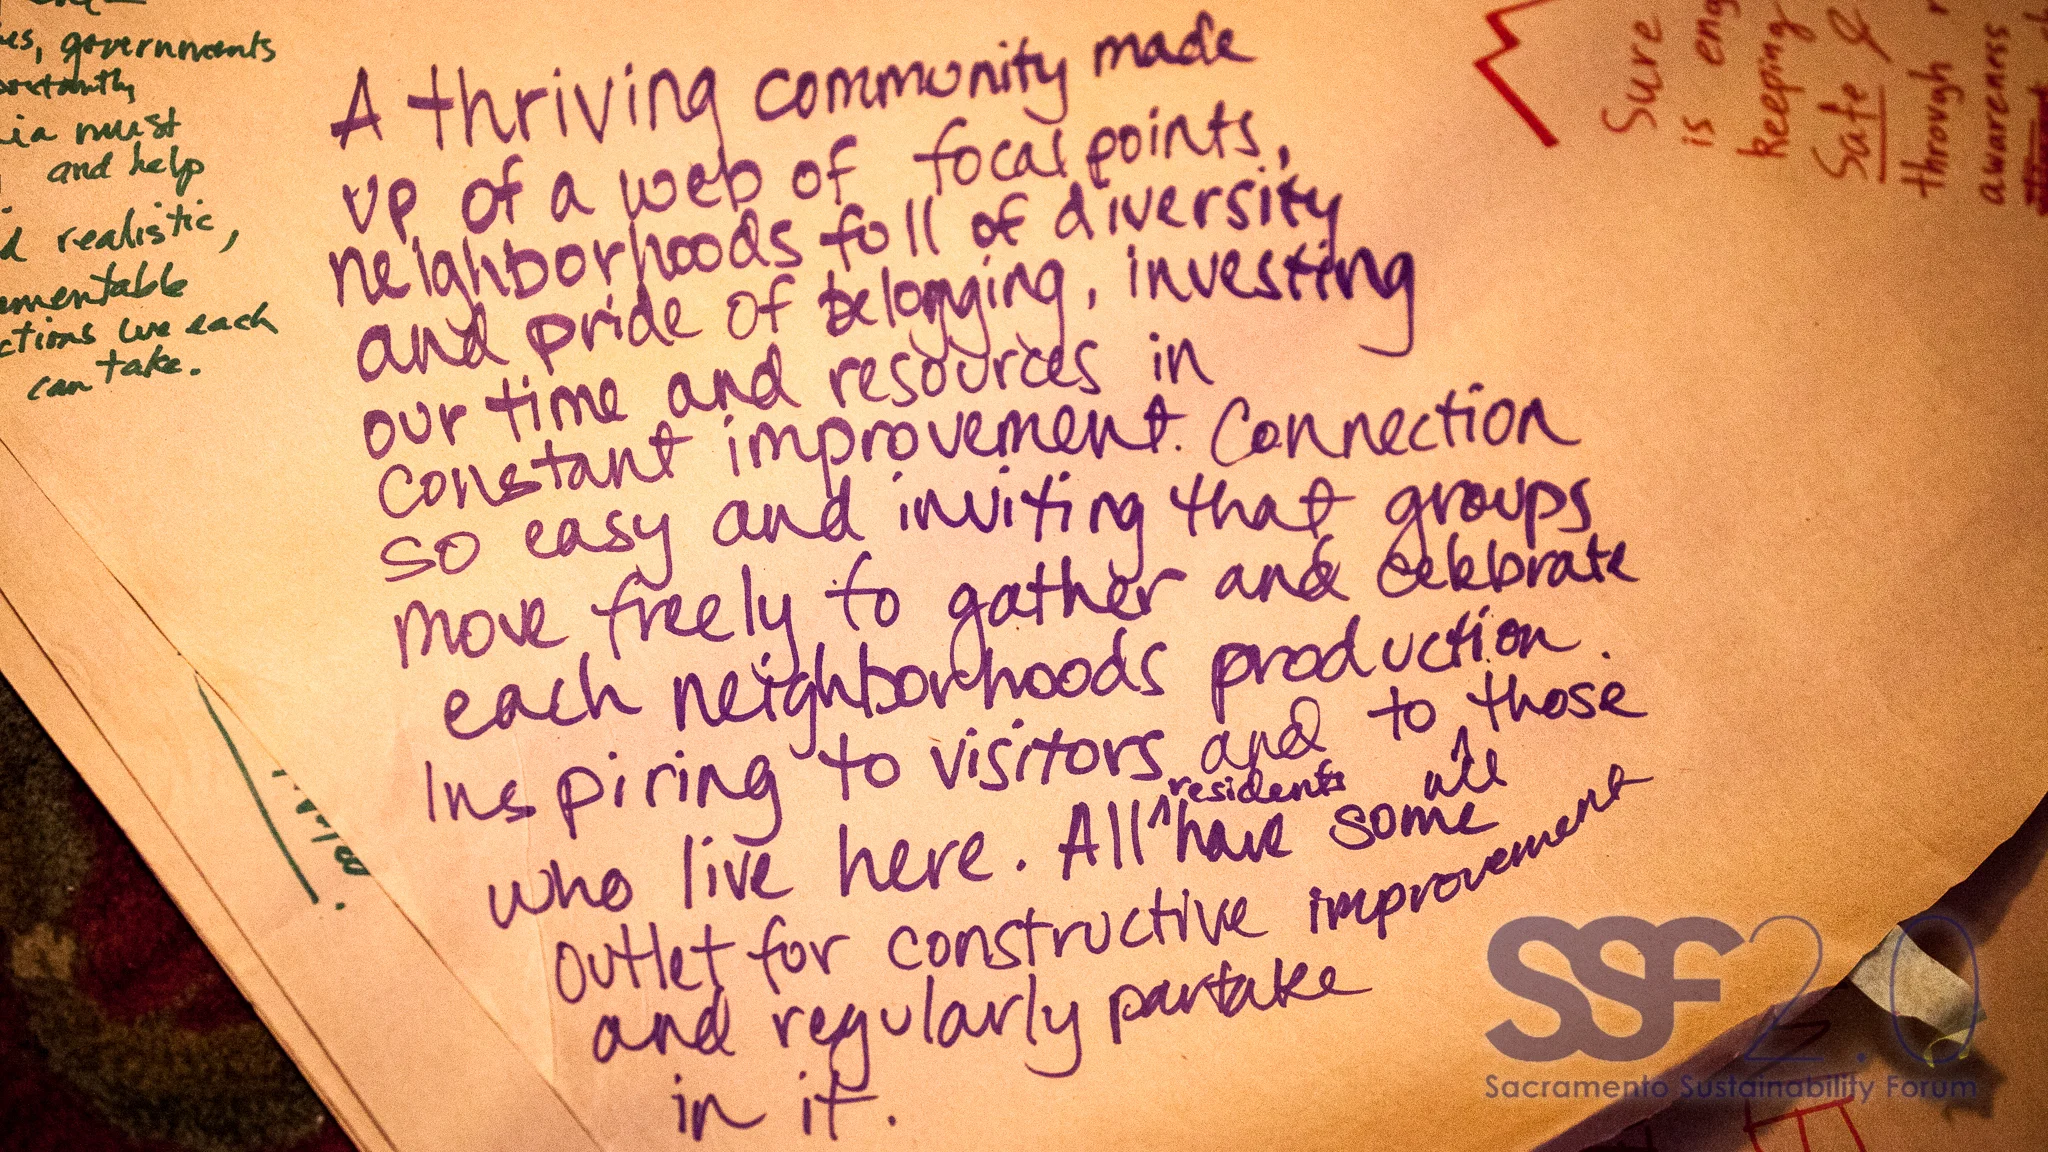 governments
must
and help
realistic,
we each
can take.
A thriving community made
up of a web of focal points,
neighborhoods full of diversity
and pride of belonging, investing
our time and resources in
constant improvement. Connection
so easy and inviting that groups
move freely to gather and celebrate
each neighborhoods production.
Inspiring to visitors and to those
who live here. All ^ residents have some
all
outlet for constructive improvement
and regularly partake
in it.
Sure
is
keeping
Safe &
through
awareness
SSF2.0
Sacramento Sustainability Forum